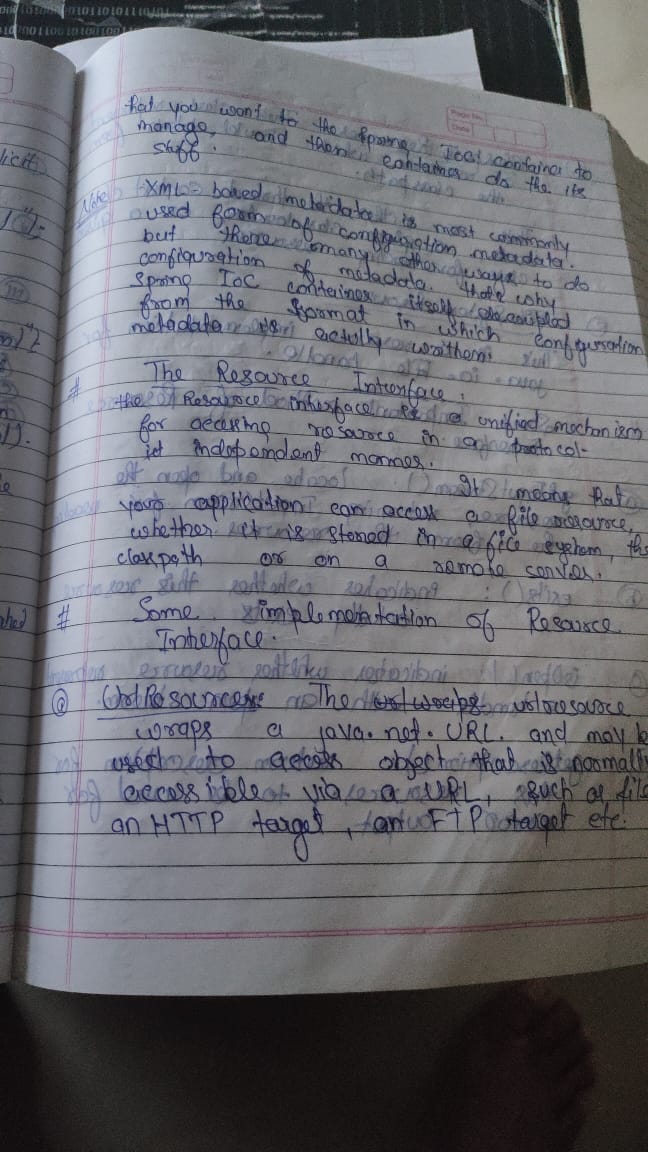 that you want to the Spring IoC container to
manage, and then container do the its
stuff.
Note XML - based metadata is most commonly
used form of configuration metadata.
but there many other ways to do
configuration of metadata. that's why
Spring IoC container itself decoupled
from the format in which configuration
metadata is actully written.
# The Resource Interface.
the Resource interface is a unified mechanism
for accessing resource in a protocol-
independent manner.
It means that
your application can access a file resource,
whether it is stored in a file system, the
classpath or on a remote server.
# Some implementation of Resource
Interface.
@ UrlResource The urlresource
wraps a java.net.URL. and may be
used to access object that is normally
accessible via a URL, such as file
an HTTP target, an FTP target etc.